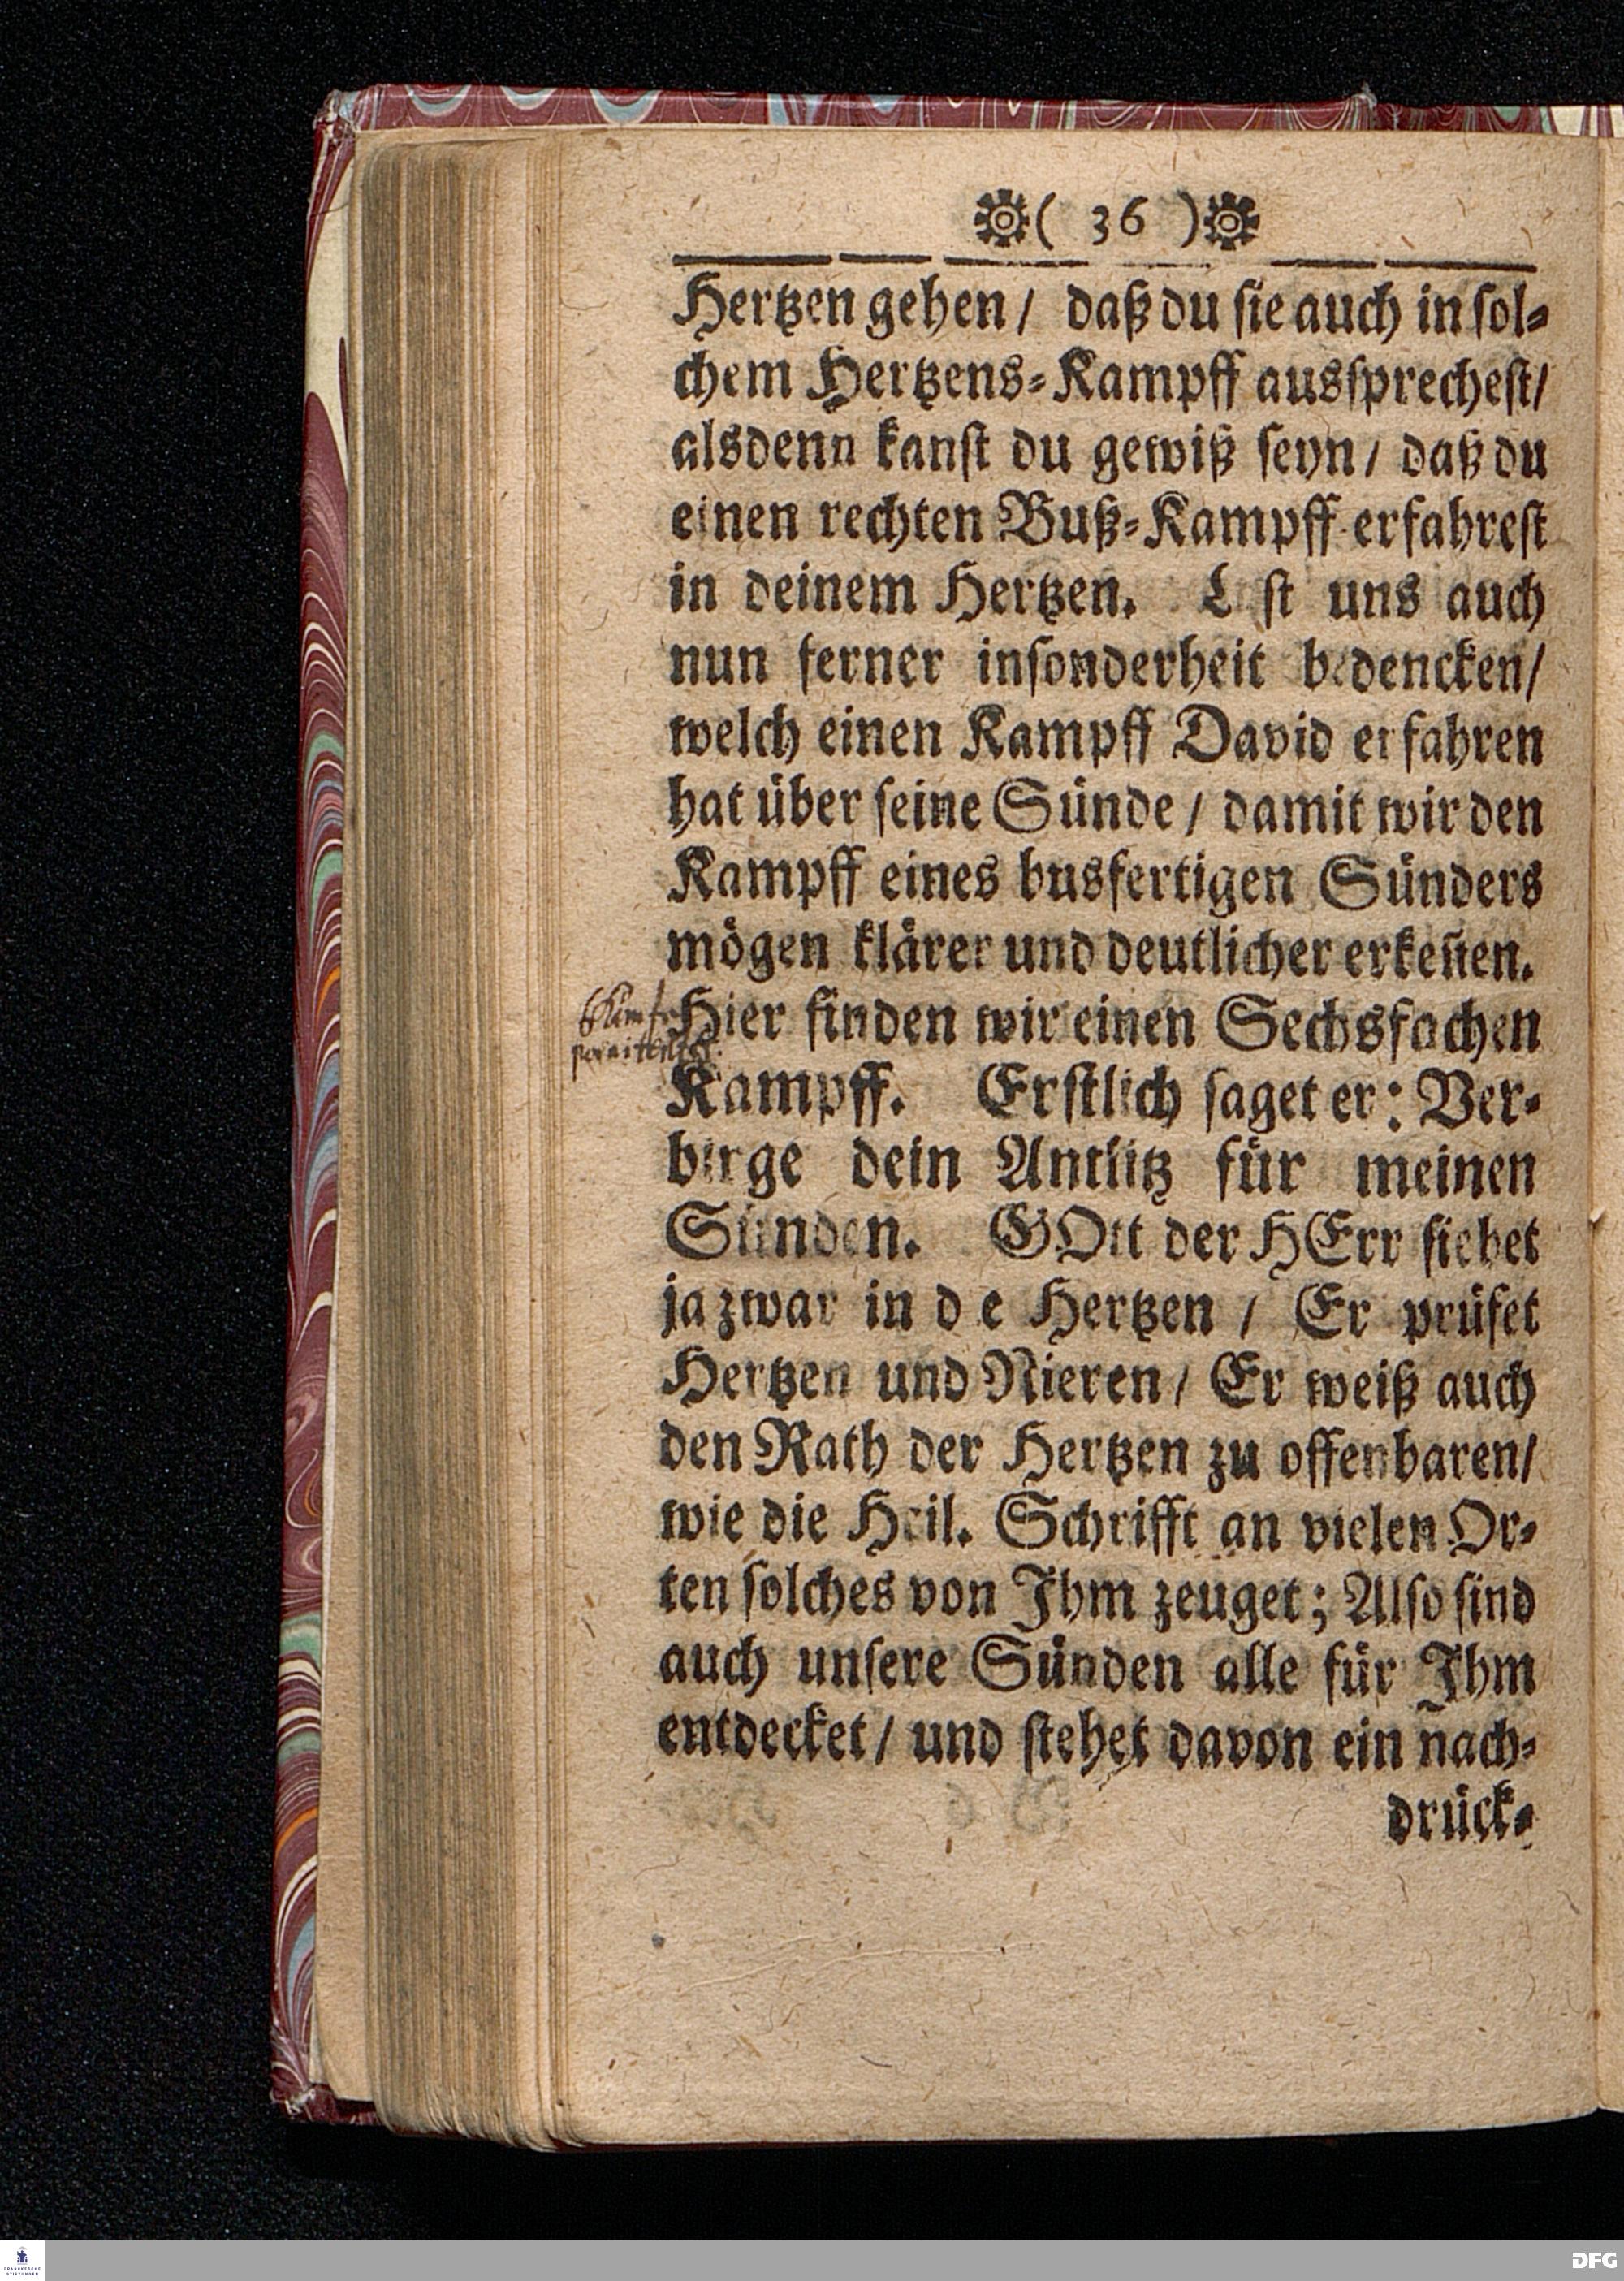 ( 36 )
Hertzen gehen / daß du ſie auch in ſol⸗
chem Hertzens⸗Kampff ausſprecheſt/
alsdenn kanſt du gewiß ſeyn / daß du
einen rechten Buß⸗Kampff erfahreſt
in deinem Hertzen. L ſt uns auch
nun ferner inſonderheit bedencken/
welch einen Kampff David erfahren
hat über ſeine Sünde / damit wir den
Kampff eines busfertigen Sünders
mögen klärer und deutlicher erkeñen.
Hier finden wir einen Sechsfachen
Kampff. Erſtlich ſaget er: Ver⸗
birge dein Antlitz für meinen
Sünden. GOtt der HErr ſiehet
ja zwar in d e Hertzen / Er prüfet
Hertzen und Nieren / Er weiß auch
den Rath der Hertzen zu offenbaren/
wie die Heil. Schrifft an vielen Or⸗
ten ſolches von Ihm zeuget; Alſo ſind
auch unſere Sünden alle für Ihm
entdecket / und ſtehet davon ein nach⸗
drück⸗
FRANCKESCHE
STIFTUNGEN
DFG